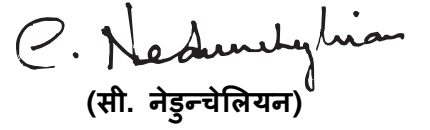 C. Nedunchezhian
(सी. नेडुन्चेलियन)